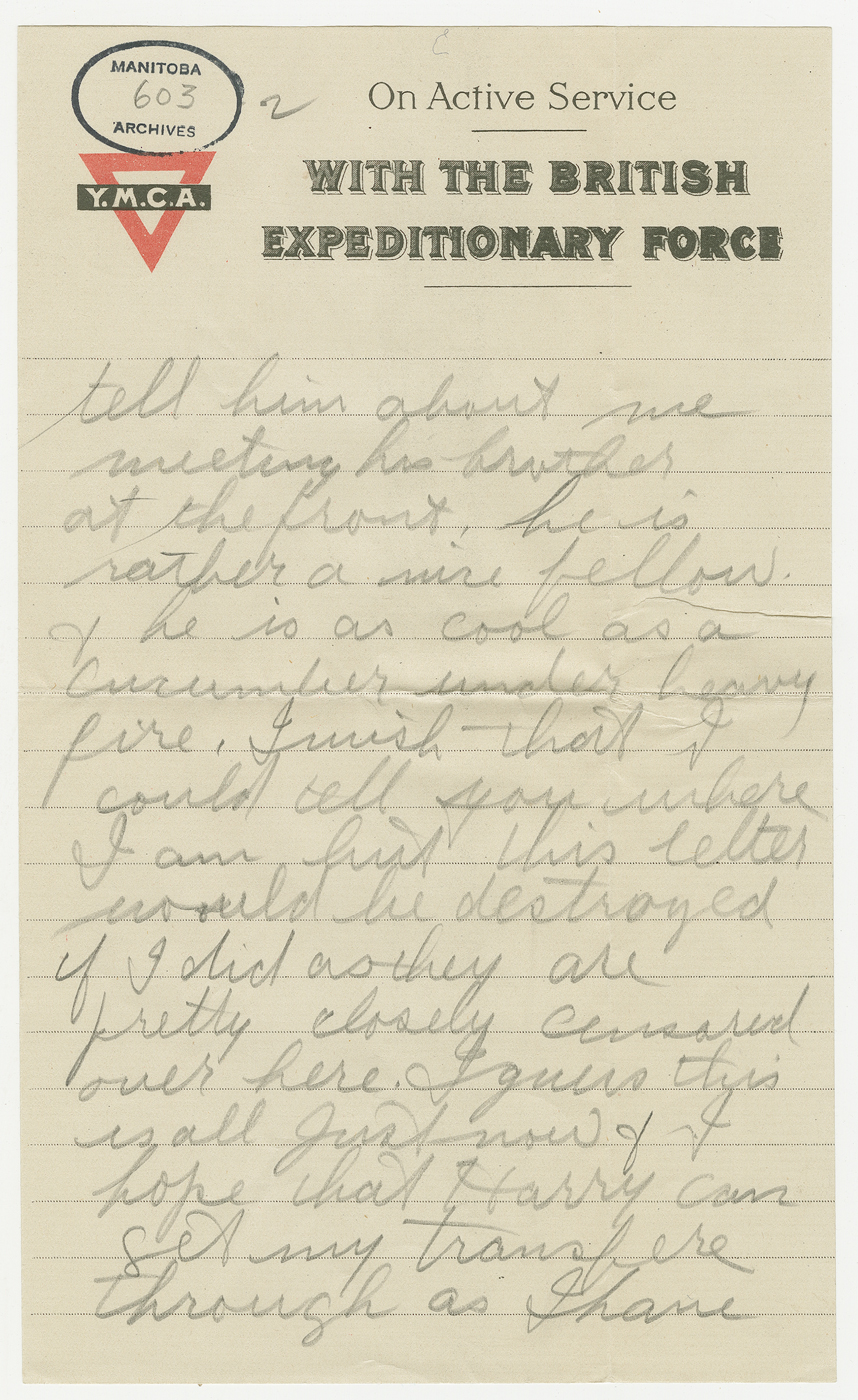 MANITOBA
603
ARCHIVES
2
On Active Service
Y.M.C.A.
WITH THE BRITISH
EXPEDITIONARY FORCE
tell him about me
meeting his brother
at the front, he is
rather a nice fellow.
& he is as cool as a
cucumber under heavy
fire, I wish that I
could tell you where
I am but this letter
would be destroyed
if I did as they are
pretty closely censored
over here. I guess this
is all Just now & I
hope that Harry can
get my transfere
through as I have